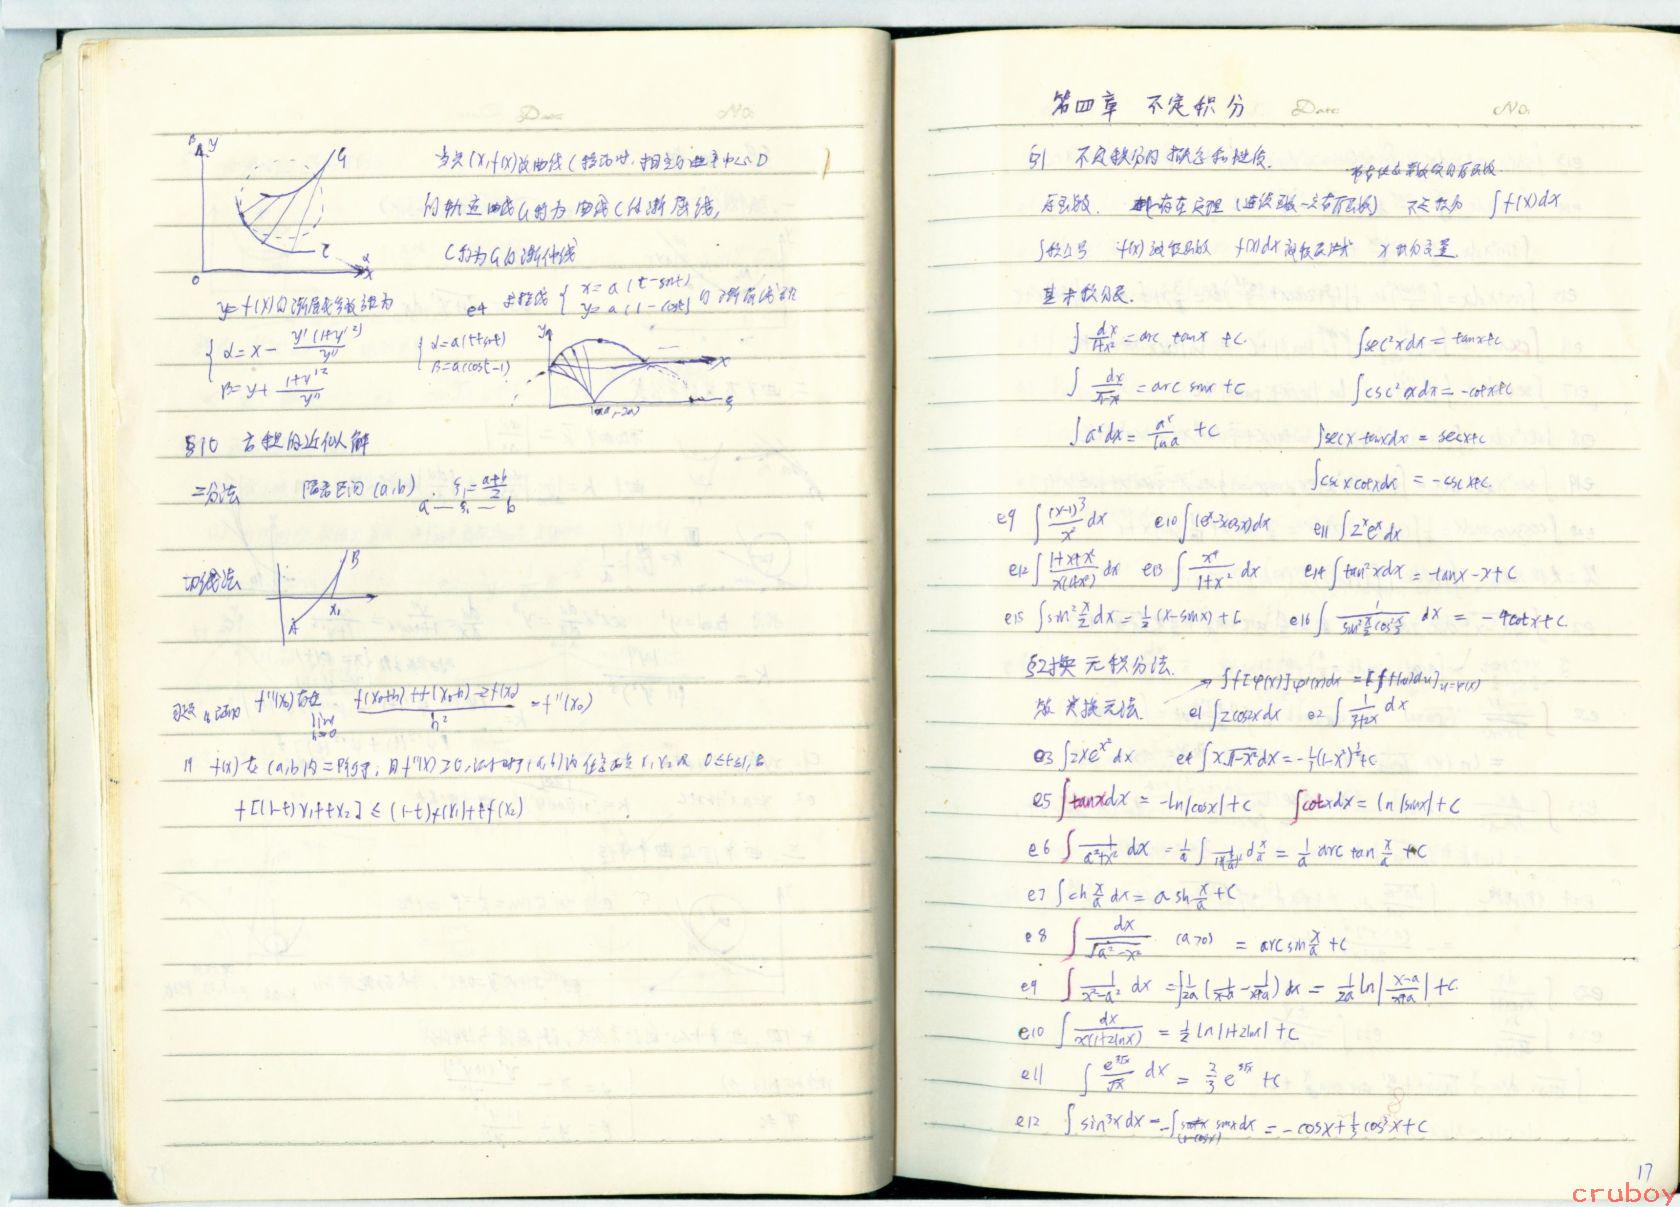 Date No.
β y
G
当点(x,f(x))沿曲线C移动时,相应的曲率中心D
的轨迹曲线G称为曲线C的渐屈线,
C称为G的渐伸线
C
α
x
0
y=f(x)的渐屈线参数方程为
e4 求摆线 { x=a(t-sint) y=a(1-cost) 的渐屈线方程
{ α=x- y'(1+y'^2)/y''
β=y+ (1+y'^2)/y''
{ α=a(t+sint)
β=a(cost-1)
y
x
ξ
(πa,-2a)
§10 方程的近似解
二分法 隔离区间(a,b) ξ₁=(a+b)/2
a — ξ₁ — b
切线法
B
x₁
A
f''(x₀)存在 lim h→0 (f(x₀+h)+f(x₀-h)-2f(x₀))/h² =f''(x₀)
f(x)在(a,b)内二阶可导,且f''(x)≥0, 对于(a,b)内任意两点x₁,x₂及0≤t≤1,有
f[(1-t)x₁+tx₂] ≤ (1-t)f(x₁)+tf(x₂)
第四章 不定积分 Date No.
§1 不定积分的概念和性质.
原函数. 存在定理(连续函数一定有原函数) 不定积分 ∫f(x)dx
∫积分号 f(x)被积函数 f(x)dx被积表达式 x积分变量.
基本积分表.
∫ dx/(1+x²) = arc tanx +C. ∫sec²xdx = tanx+C
∫ dx/√(1-x²) = arc sinx +C ∫csc²xdx = -cotx+C
∫a^x dx = a^x/lna +C ∫secx tanxdx = secx+C
∫cscxcotxdx = -cscx+C.
e9 ∫ (x-1)³/x² dx e10 ∫(e^x-3cosx)dx e11 ∫2^x e^x dx
e12 ∫ (1+x+x²)/(x(1+x²)) dx e13 ∫ x⁴/(1+x²) dx e14 ∫tan²xdx = tanx-x+C
e15 ∫sin² x/2 dx = 1/2 (x-sinx)+C e16 ∫ 1/(sin² x/2 cos² x/2) dx = -4cotx+C.
§2 换元积分法.
∫f[φ(x)]φ'(x)dx = [∫f(u)du]u=φ(x)
第一类换元法. e1 ∫2cos2xdx e2 ∫ 1/(3+2x) dx
e3 ∫2xe^x² dx e4 ∫x√(1-x²)dx = -1/3(1-x²)^(3/2)+C
e5 ∫tanxdx = -ln|cosx|+C ∫cotxdx = ln|sinx|+C
e6 ∫ 1/(a²+x²) dx = 1/a ∫ 1/(1+(x/a)²) d x/a = 1/a arc tan x/a +C
e7 ∫ch x/a dx = a sh x/a +C
e8 ∫ dx/√(a²-x²) (a>0) = arcsin x/a +C
e9 ∫ 1/(x²-a²) dx = ∫ 1/2a (1/(x-a) - 1/(x+a)) dx = 1/2a ln|(x-a)/(x+a)|+C.
e10 ∫ dx/(x(1+2lnx)) = 1/2 ln|1+2lnx|+C
e11 ∫ e^(3√x)/√x dx = 2/3 e^(3√x) +C
e12 ∫sin³xdx = -∫ sinxdx = -cosx+1/3cos³x+C
17
cruboy